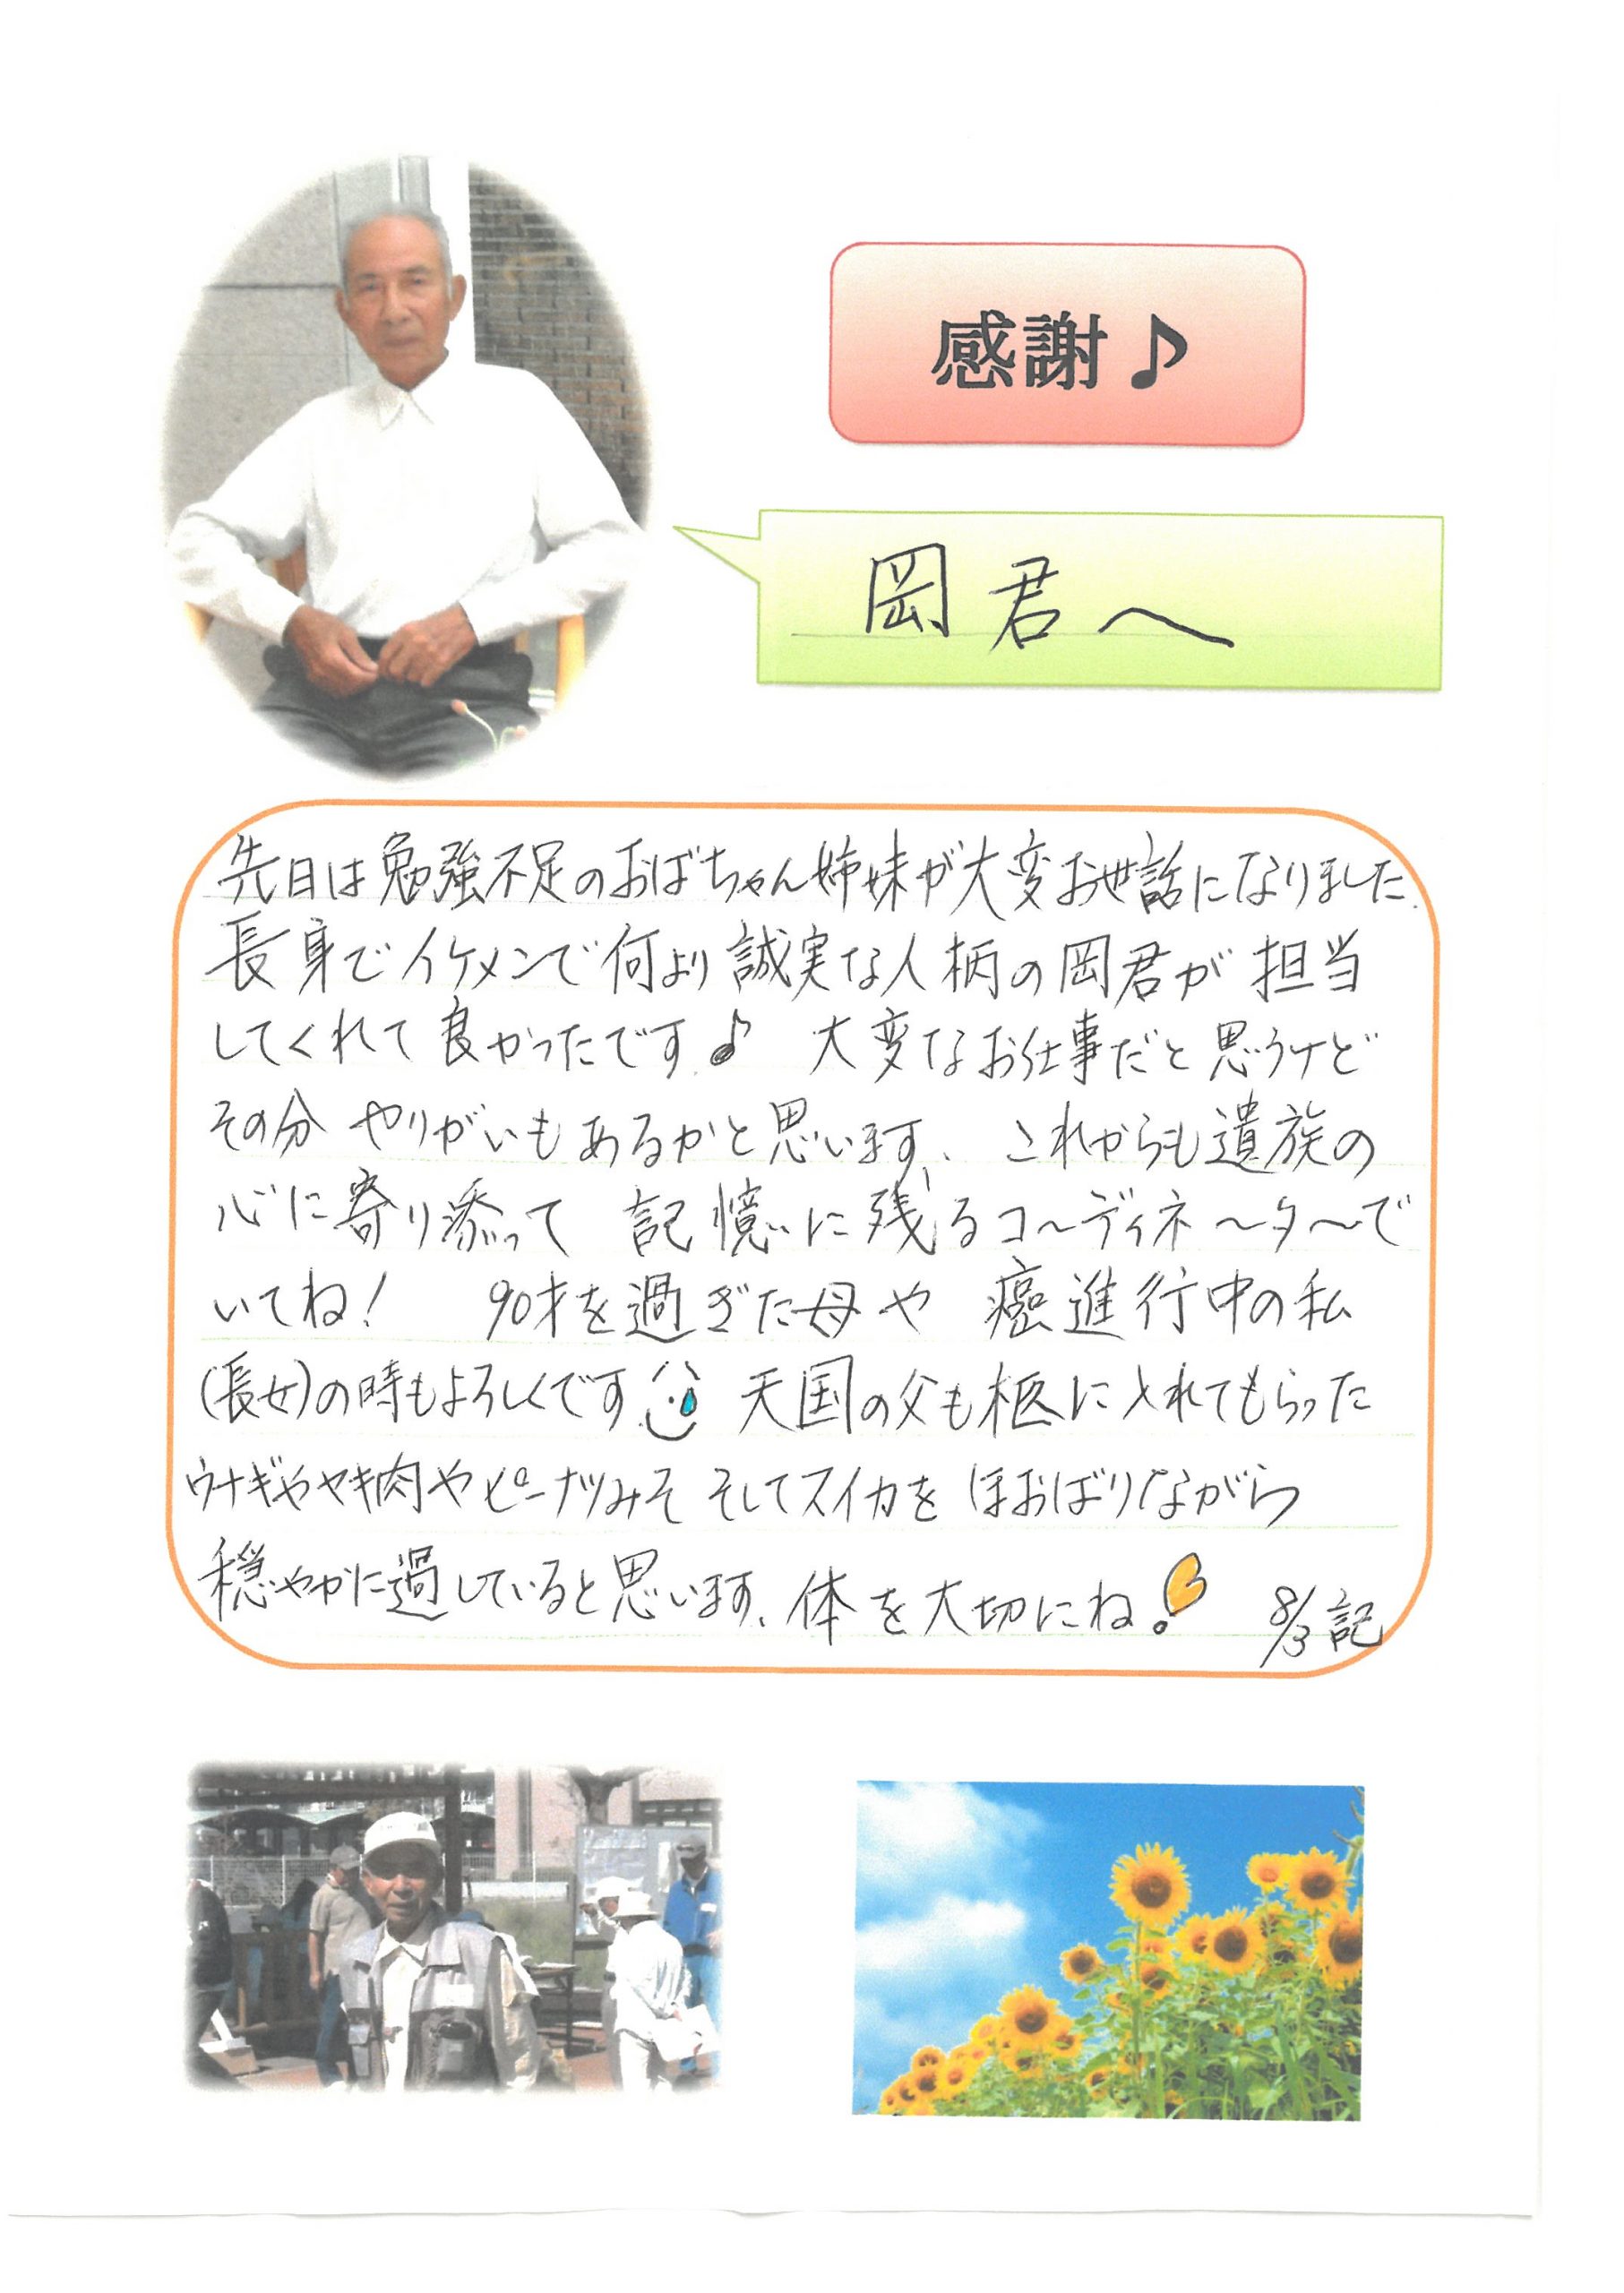 感謝♪
岡君へ
先日は勉強不足のおばちゃん姉妹が大変お世話になりました.
長身でイケメンで何より誠実な人柄の岡君が担当
してくれて良かったです♪ 大変なお仕事だと思うけど
その分やりがいもあるかと思います、これからも遺族の
心に寄り添って 記憶に残るコ〜ディネ〜タ〜で
いてね! 90才を過ぎた母や 癌進行中の私
(長女)の時もよろしくです 天国の父も柩に入れてもらった
ウナギやヤキ肉やピーナツみそ そしてスイカを ほおばりながら
穏やかに過していると思います、体を大切にね! 8/3記